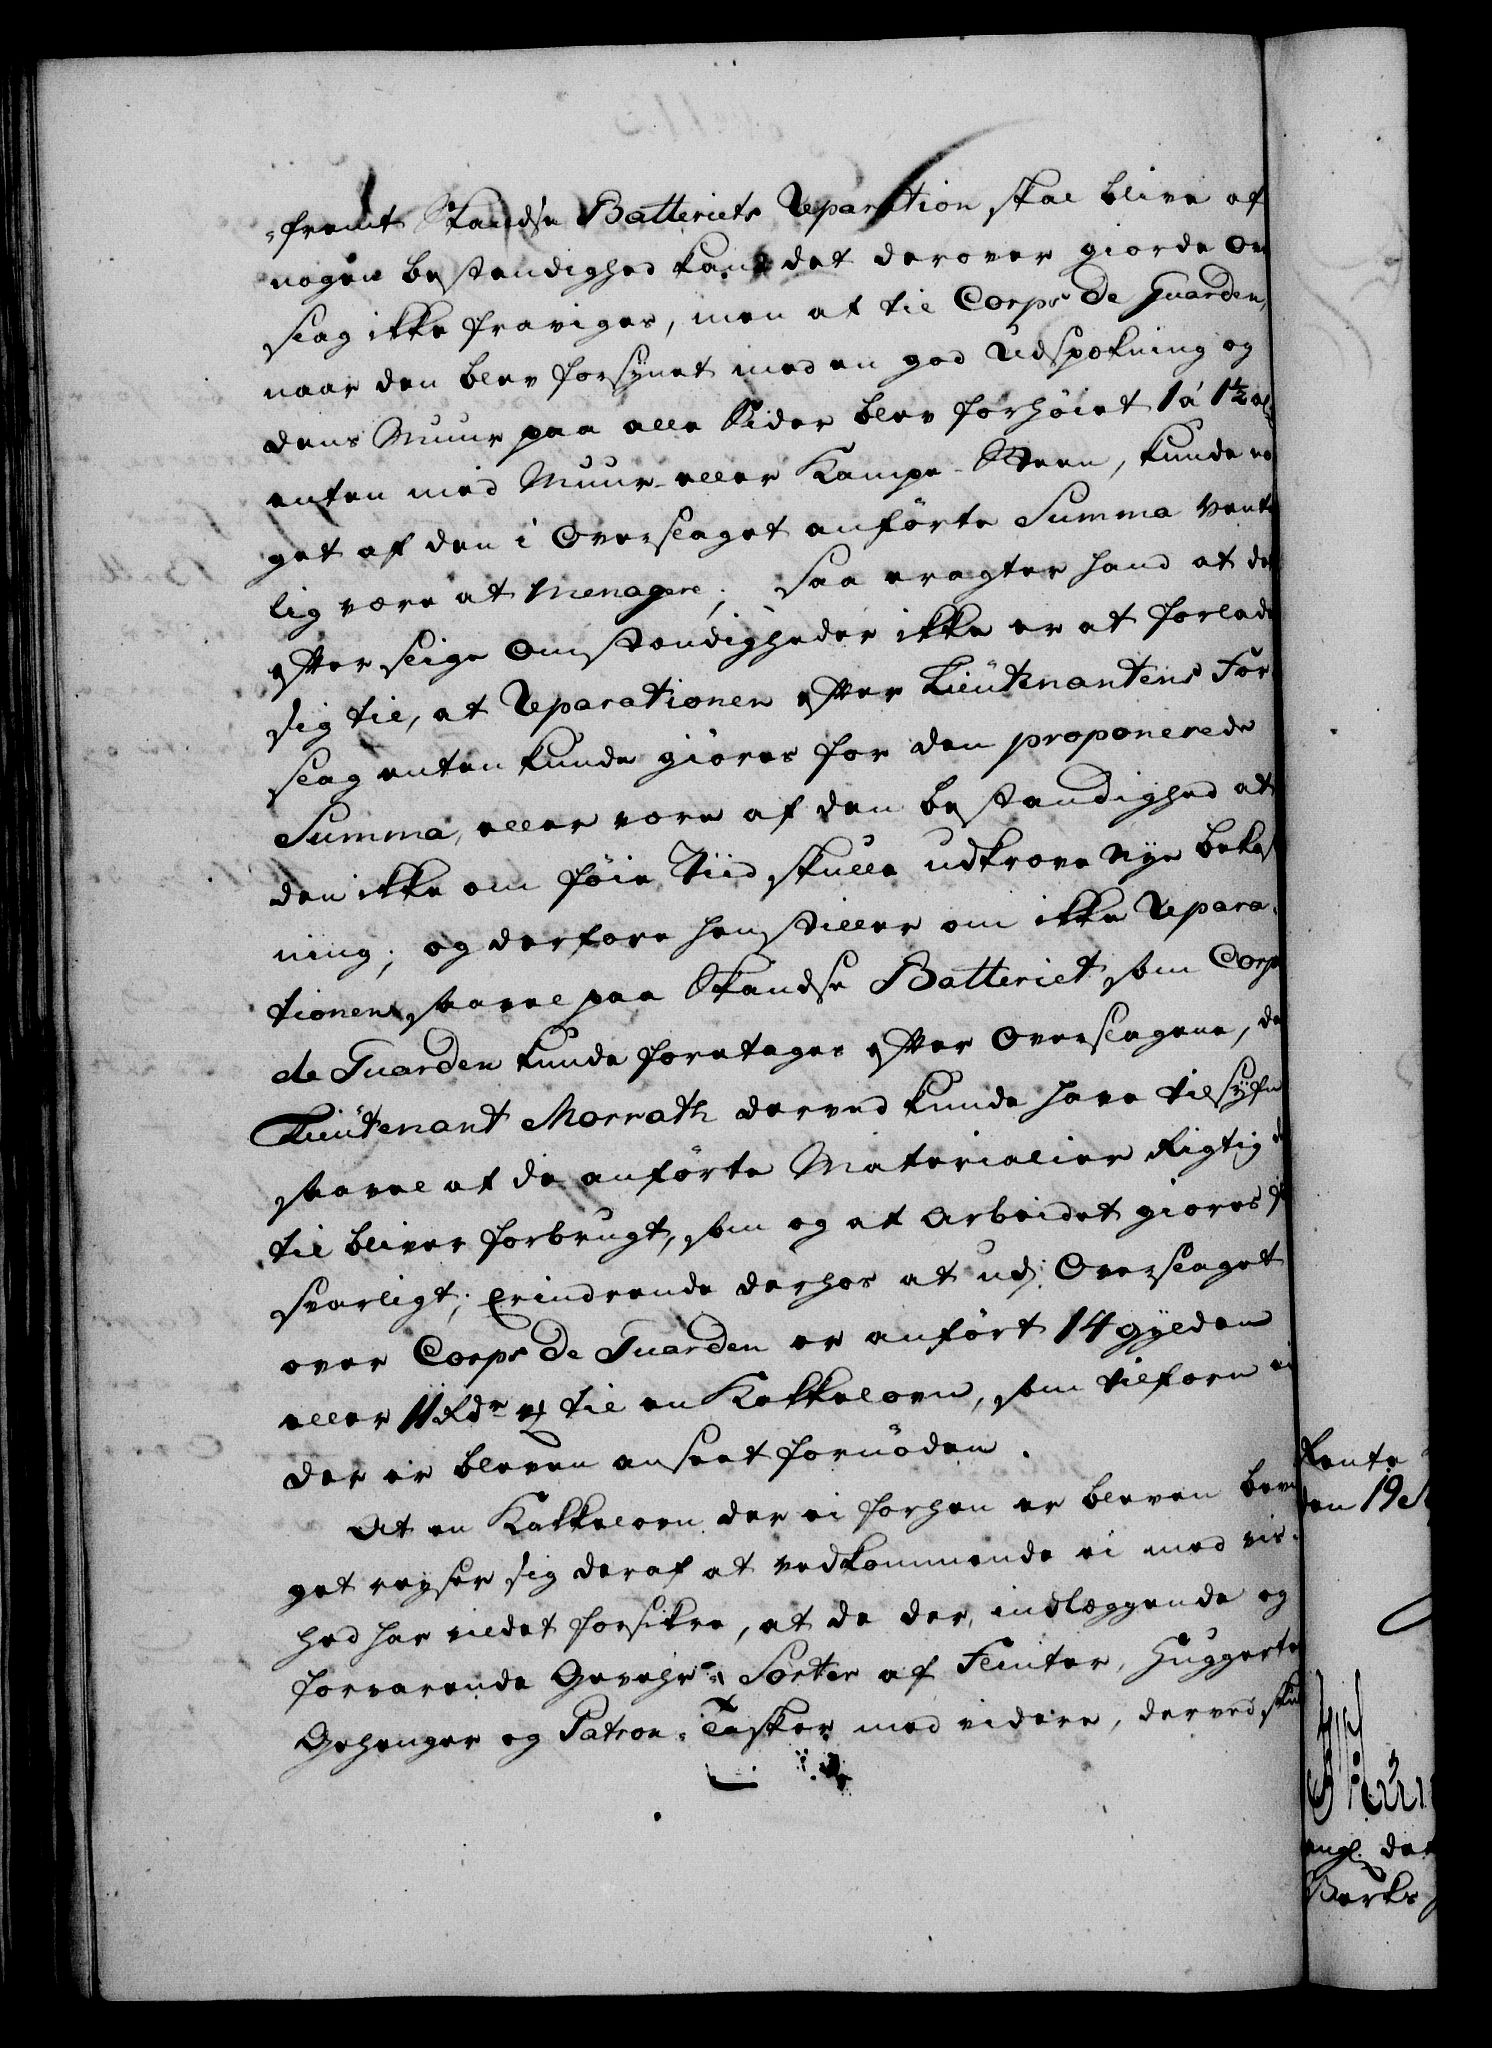 -fremt Skandse Batteriets Reparation skal blive af
nogen bestandighed kand det derover giorde Over
slag ikke fraviges, men at til Corps de Guarden,
naar den blev forsÿnet med en god Udspekning og
dens Muur paa alle Sider blev forhöiet 1 á 1½ al:
enten med Muur- eller Kampe-Steen, kunde no
get af den i Overslaget anförte Summa vente
lig være at menagere; Saa eragter hand at det
efter slige Omstændigheder ikke er at forlade
sig til, at Reparationen efter Lieutenantens For
slag enten kunde giöres for den proponerede
Summa, eller være af den bestandighed at
den ikke om föie Tiid skulle udkræve nye bekost
ning; og derfore henstiller om ikke Repara-
tionen saavel paa Skandse Batteriet som Corps
de Guarden kunde foretages efter Overslagene, da
Lieutenant Morrath derved kunde have tilsÿn
saavel at de anförte Materialier Rigtig der
til bliver forbrugt, som og at Arbeidet giöres for
svarligt; Erindrende derhos at udj Overslaget
over Corps de Guarden er anfört 14 gylden
eller 11 Rdr til en Kakkelovn, som tilforn ei
der er bleven anseet fornöden.
At en Kakkelovn der ei forhen er bleven bevil
get reyser sig deraf at vedkommende ei med vis-
hed har vildet forsikre, at de der, indlæggende og
forvarende Gevehr-Sorter af Flinter, Huggerte
Gehenger og Patron-Tasker med videre, derved skul
Rente
den 19